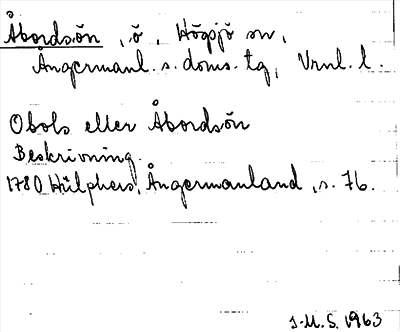 Åbordsön, ö, Högsjö sn,
Ångermanl. s. doms. tg, Vrnl. l.
Obols eller Åbordsön
Beskrivning.
1780 Hülphers, Ångermanland, s. 76.
J.M.S. 1963